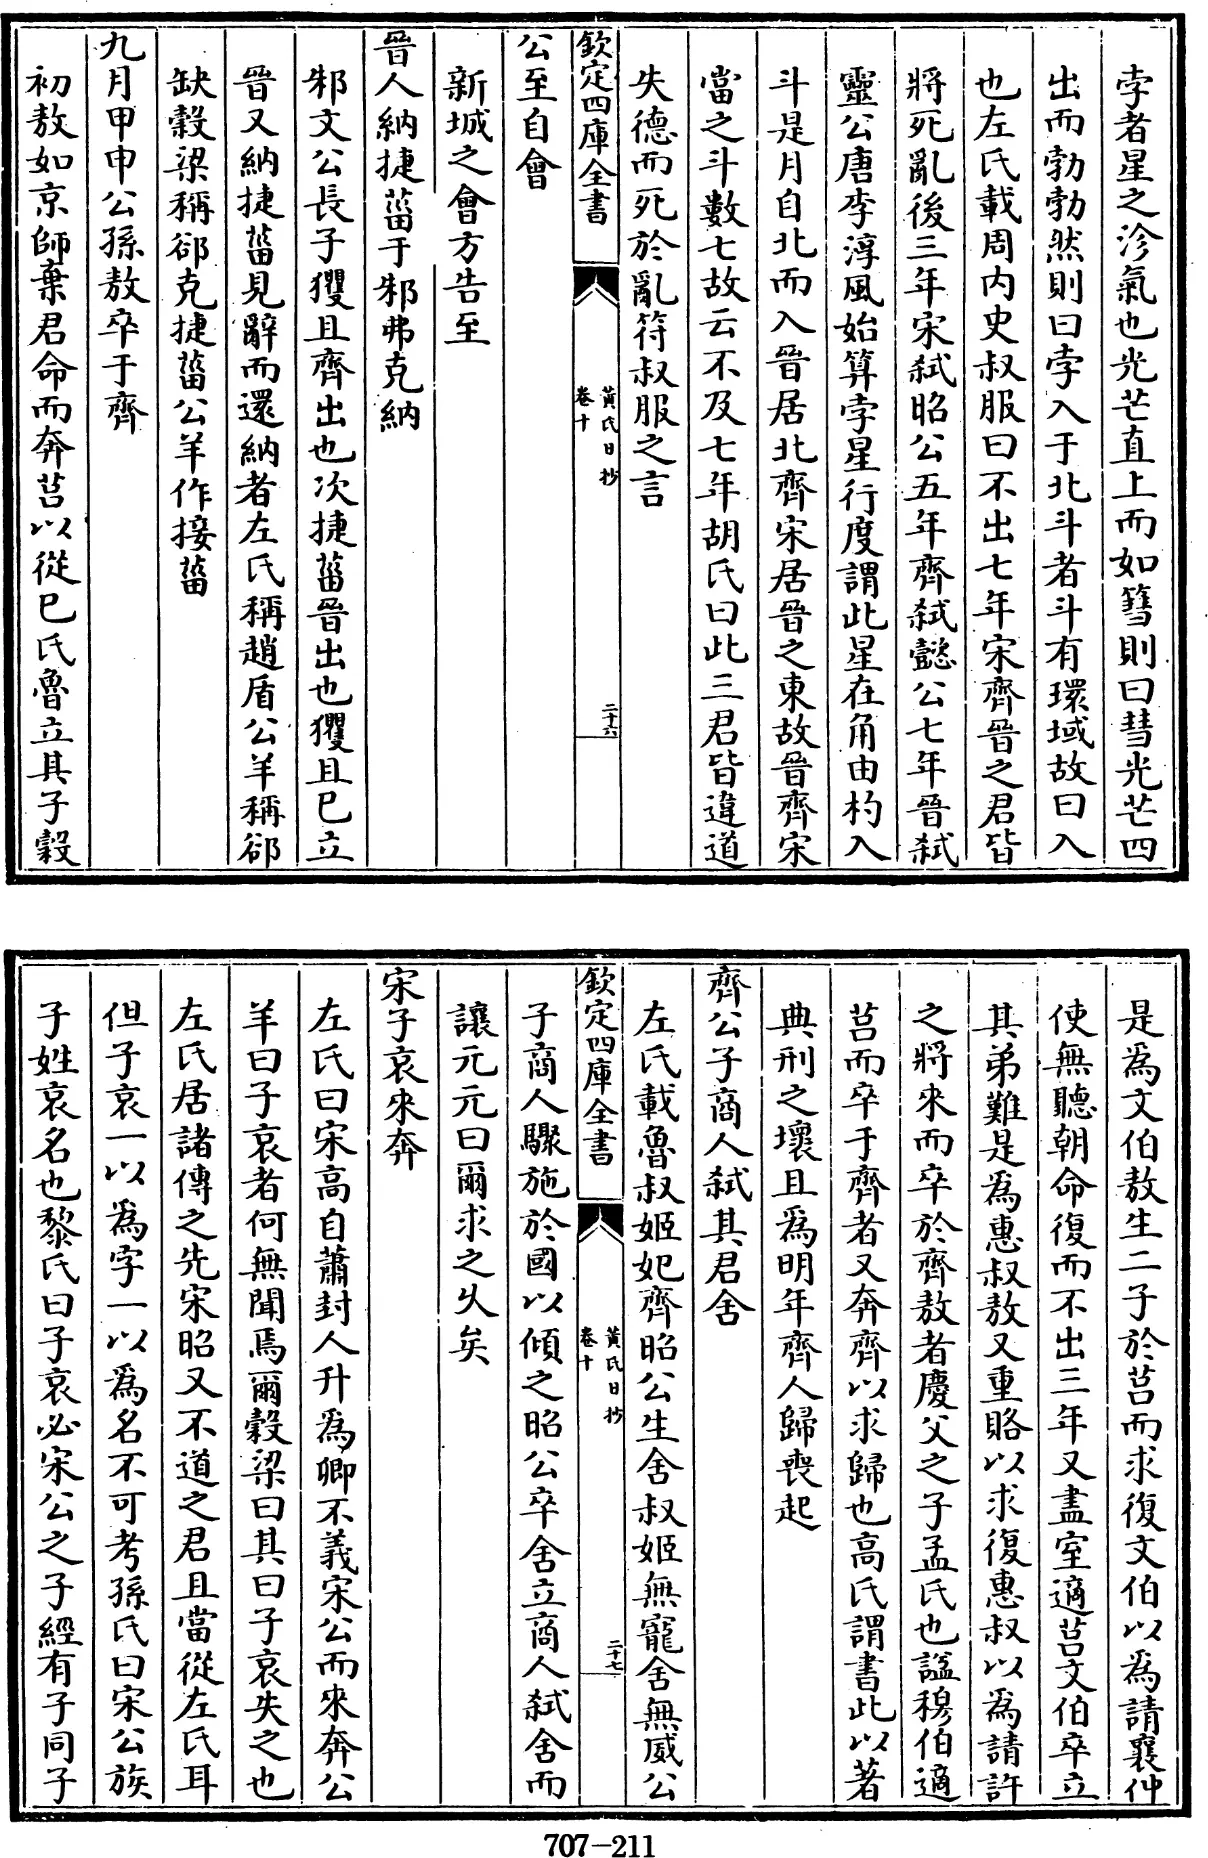 孛者星之沴氣也光芒直上而如篲則曰彗光芒四
出而勃勃然則曰孛入于北斗者斗有環域故曰入
也左氏載周内史叔服曰不出七年宋齊晉之君皆
將死亂後三年宋弑昭公五年齊弑懿公七年晉弑
靈公唐李淳風始算孛星行度謂此星在角由杓入
斗是月自北而入晉居北齊宋居晉之東故晉齊宋
當之斗數七故云不及七年胡氏曰此三君皆違道
失德而死於亂符叔服之言
欽定四庫全書
黄氏日抄
卷十
二十六
公至自會
新城之會方告至
晉人納捷菑于邾弗克納
邾文公長子貜且齊出也次捷菑晉出也貜且已立
晉又納捷菑見辭而還納者左氏稱趙盾公羊稱郤
缺穀梁稱郤克捷菑公羊作接菑
九月甲申公孫敖卒于齊
初敖如京師棄君命而奔莒以從己氏魯立其子穀
是為文伯敖生二子於莒而求復文伯以為請襄仲
使無聽朝命復而不出三年又盡室適莒文伯卒立
其弟難是為惠叔敖又重賂以求復惠叔以為請許
之將來而卒於齊敖者慶父之子孟氏也諡穆伯適
莒而卒于齊者又奔齊以求歸也高氏謂書此以著
典刑之壞且為明年齊人歸喪起
齊公子商人弑其君舍
左氏載魯叔姬妃齊昭公生舍叔姬無寵舍無威公
欽定四庫全書
黄氏日抄
卷十
二十七
子商人驟施於國以傾之昭公卒舍立商人弑舍而
讓元元曰爾求之乆矣
宋子哀來奔
左氏曰宋高自蕭封人升為卿不義宋公而來奔公
羊曰子哀者何無聞焉爾穀梁曰其曰子哀失之也
左氏居諸傳之先宋昭又不道之君且當從左氏耳
但子哀一以為字一以為名不可考孫氏曰宋公族
子姓哀名也黎氏曰子哀必宋公之子經有子同子
707-211